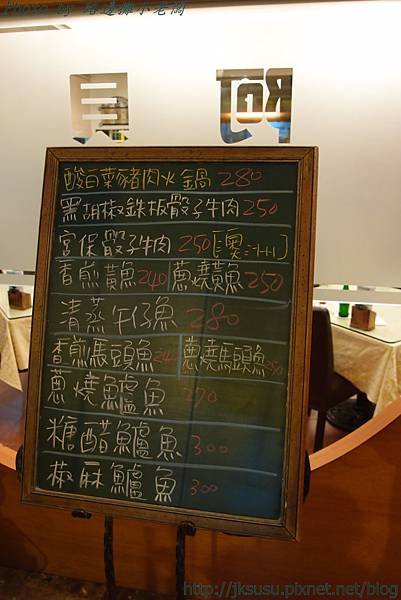 Photo by 路邊攤小老闆
阿 具
酸白菜豬肉火鍋 280
黑胡椒鉄板骰子牛肉 250
宮保骰子牛肉 250 [澳洲]
香煎黃魚 240 蔥燒黃魚 250
清蒸午仔魚 280
香煎馬頭魚 240 蔥燒馬頭魚 250
蔥燒鱸魚 270
糖醋鱸魚 300
椒麻鱸魚 300
http://jksusu.pixnet.net/blog